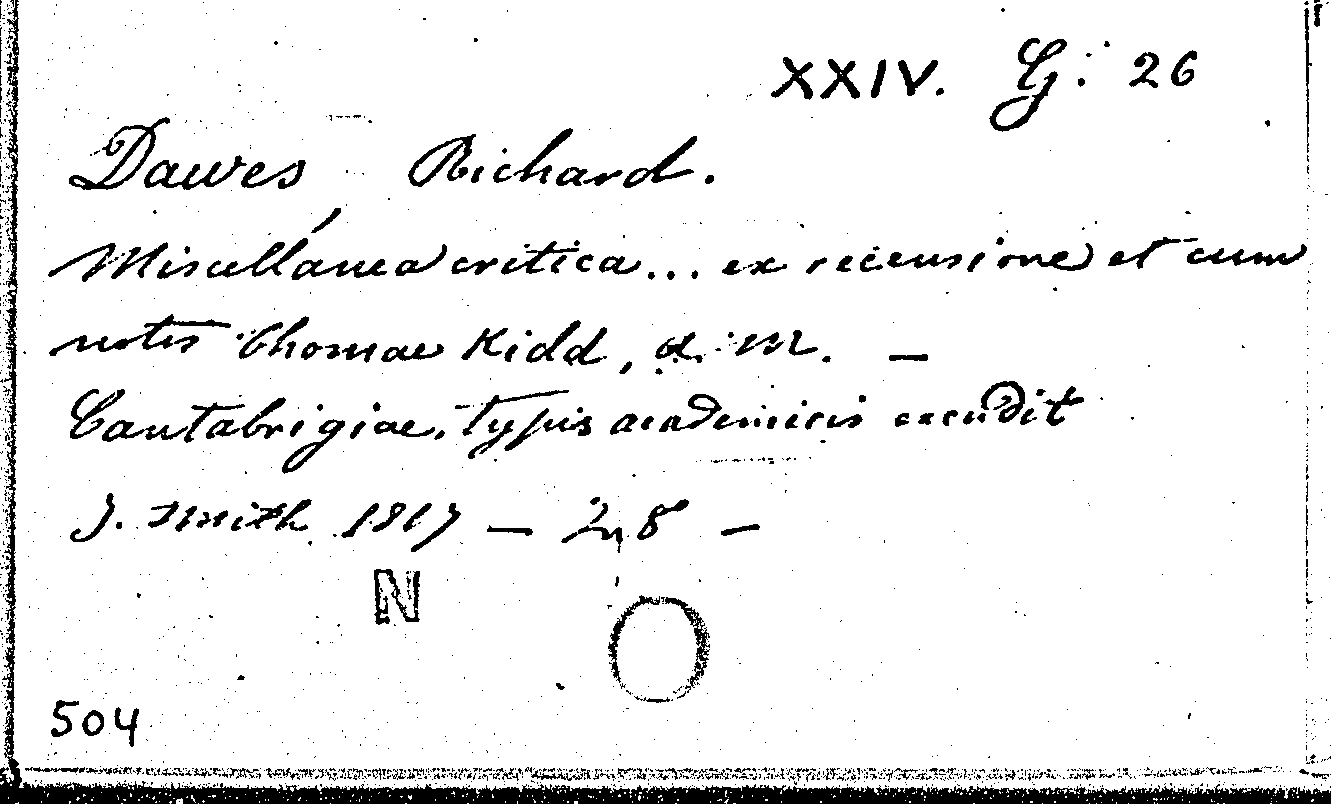 XXIV. G. 26
Dawes Richard.
Miscellánea critica... ex recensione et cum
notis Thomae Kidd, A. M. —
Cantabrigiae, typis academicis excudit
J. Smith 1817 — 8º —
N
504